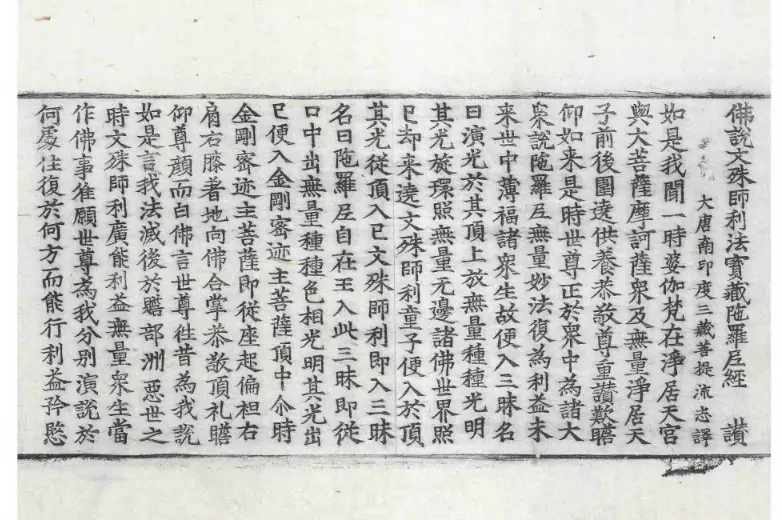 佛說文殊師利法寶藏陁羅尼經 讃
大唐南印度三藏菩提流志譯
如是我聞一時婆伽梵在淨居天宮
與大菩薩摩訶薩衆及無量淨居天
子前後圍遶供養恭敬尊重讃歎瞻
仰如来是時世尊正於衆中為諸大
衆說陁羅尼無量妙法復為利益未
来世中薄福諸衆生故便入三昧名
曰演光於其頂上放無量種種光明
其光旋環照無量无邊諸佛世界照
已却来遶文殊師利童子便入於頂
其光從頂入已文殊師利即入三昧
名曰陁羅尼自在王入此三昧即從
口中出無量種種色相光明其光出
已便入金剛密迹主菩薩頂中尒時
金剛密迹主菩薩即從座起偏袒右
肩右膝著地向佛合掌恭敬頂礼瞻
仰尊顏而白佛言世尊徃昔為我說
如是言我法滅後於贍部洲惡世之
時文殊師利廣能利益無量衆生當
作佛事惟願世尊為我分別演說於
何處住復於何方而能行利益矜愍